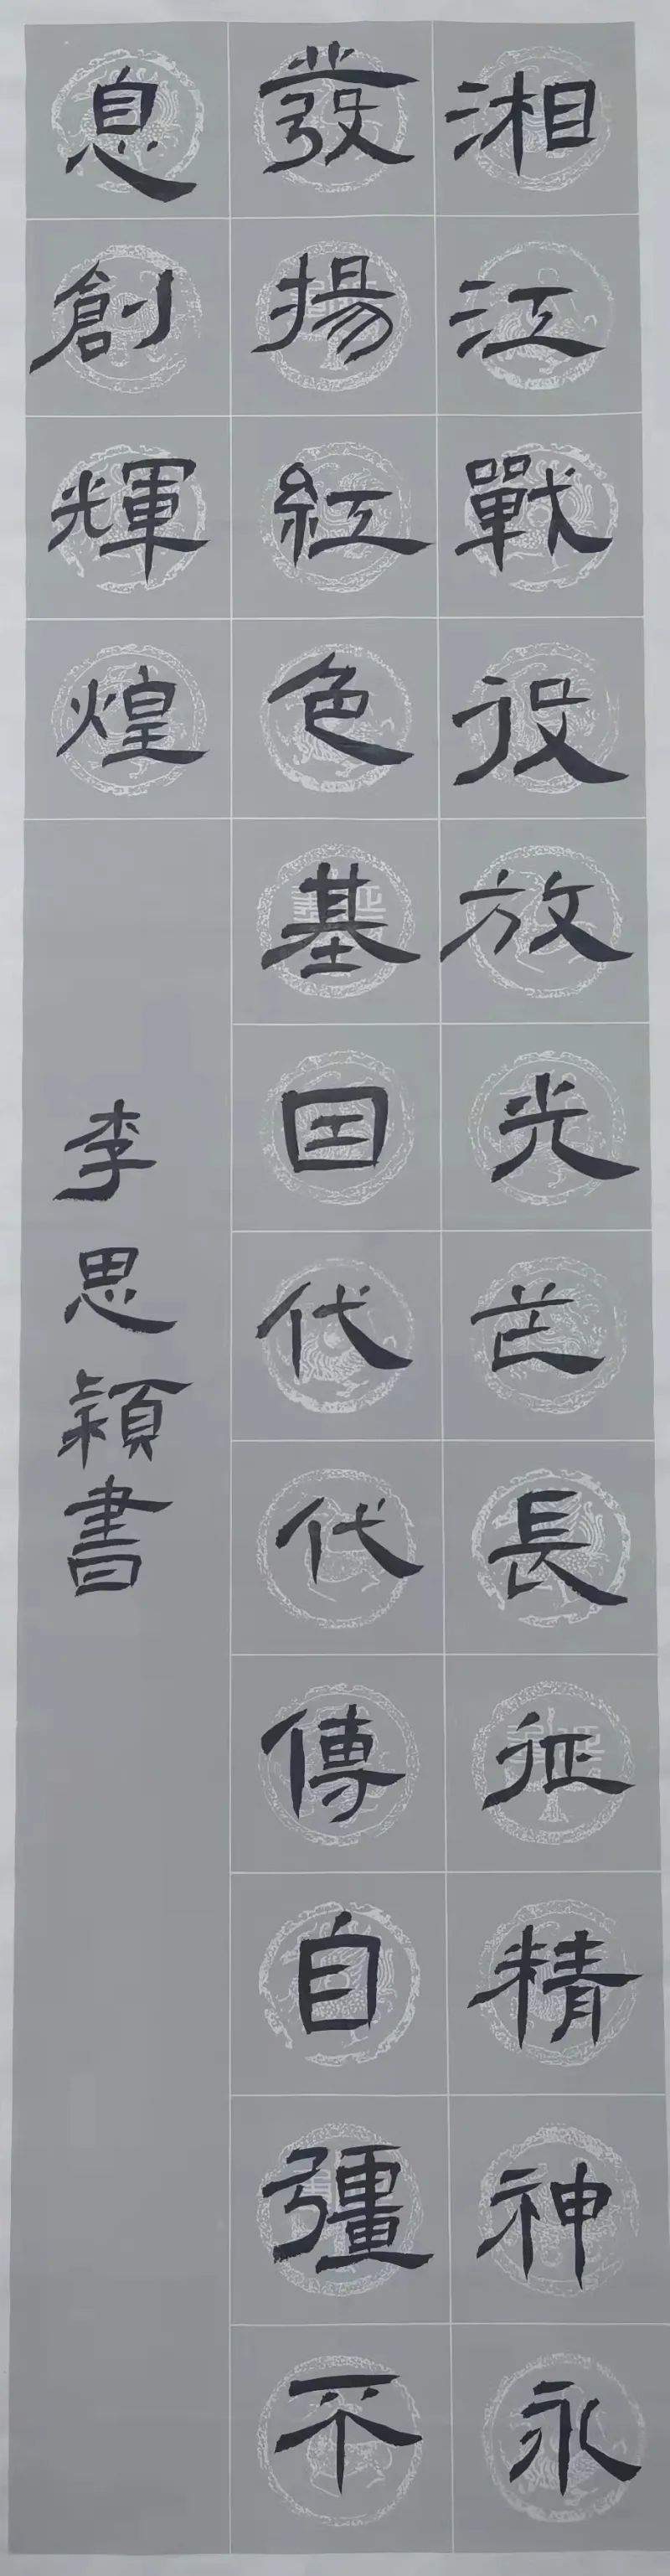 湘江戰役放光芒長征精神永
發揚紅色基因代代傳自彊不
息創輝煌
李思穎書